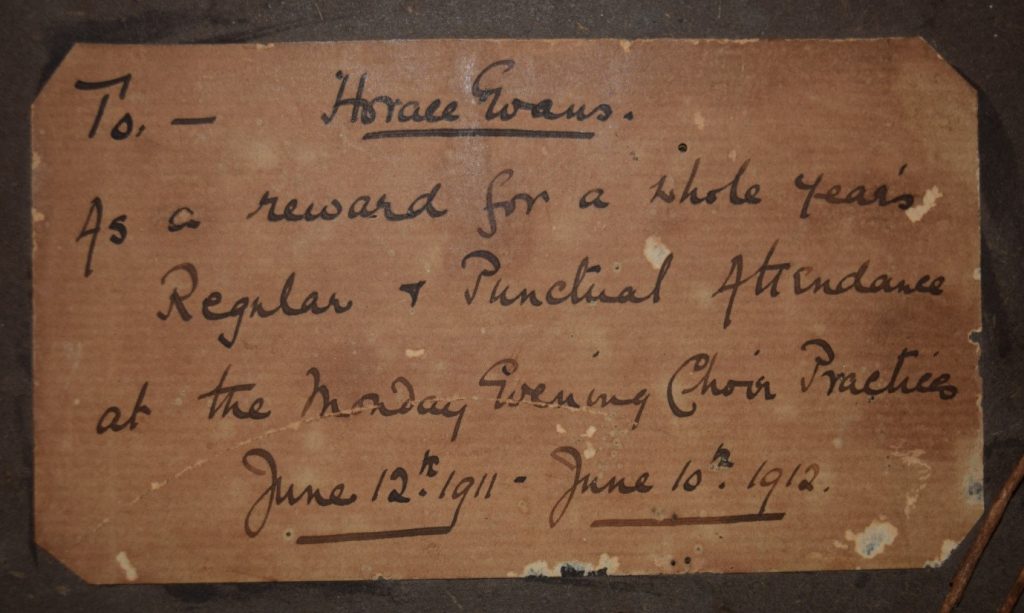 To. — Horace Evans.
As a reward for a whole year's
Regular & Punctual Attendance
at the Monday Evening Choir Practices
June 12th. 1911 - June 10th. 1912.